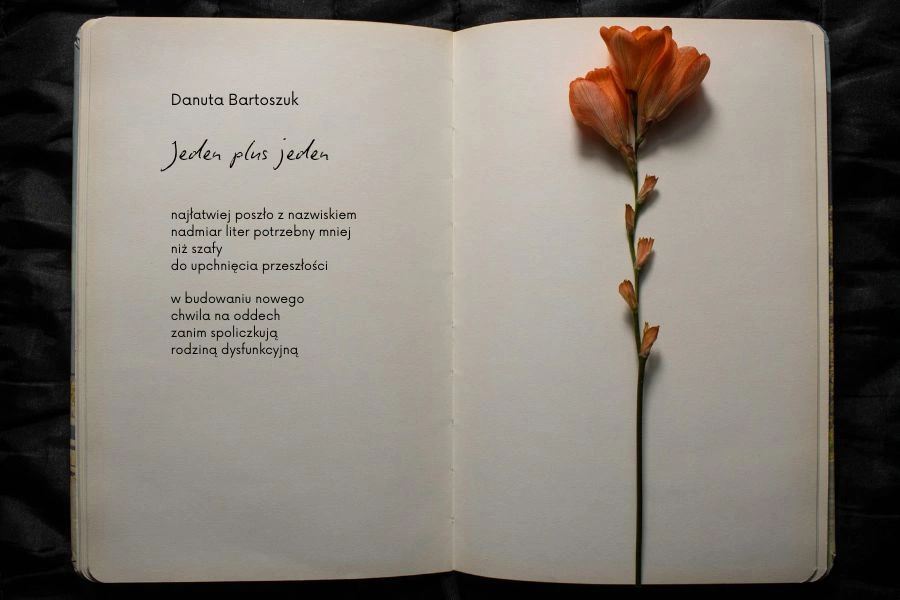 Danuta Bartoszuk
Jeden plus jeden
najłatwiej poszło z nazwiskiem
nadmiar liter potrzebny mniej
niż szafy
do upchnięcia przeszłości
w budowaniu nowego
chwila na oddech
zanim spoliczkują
rodziną dysfunkcyjną